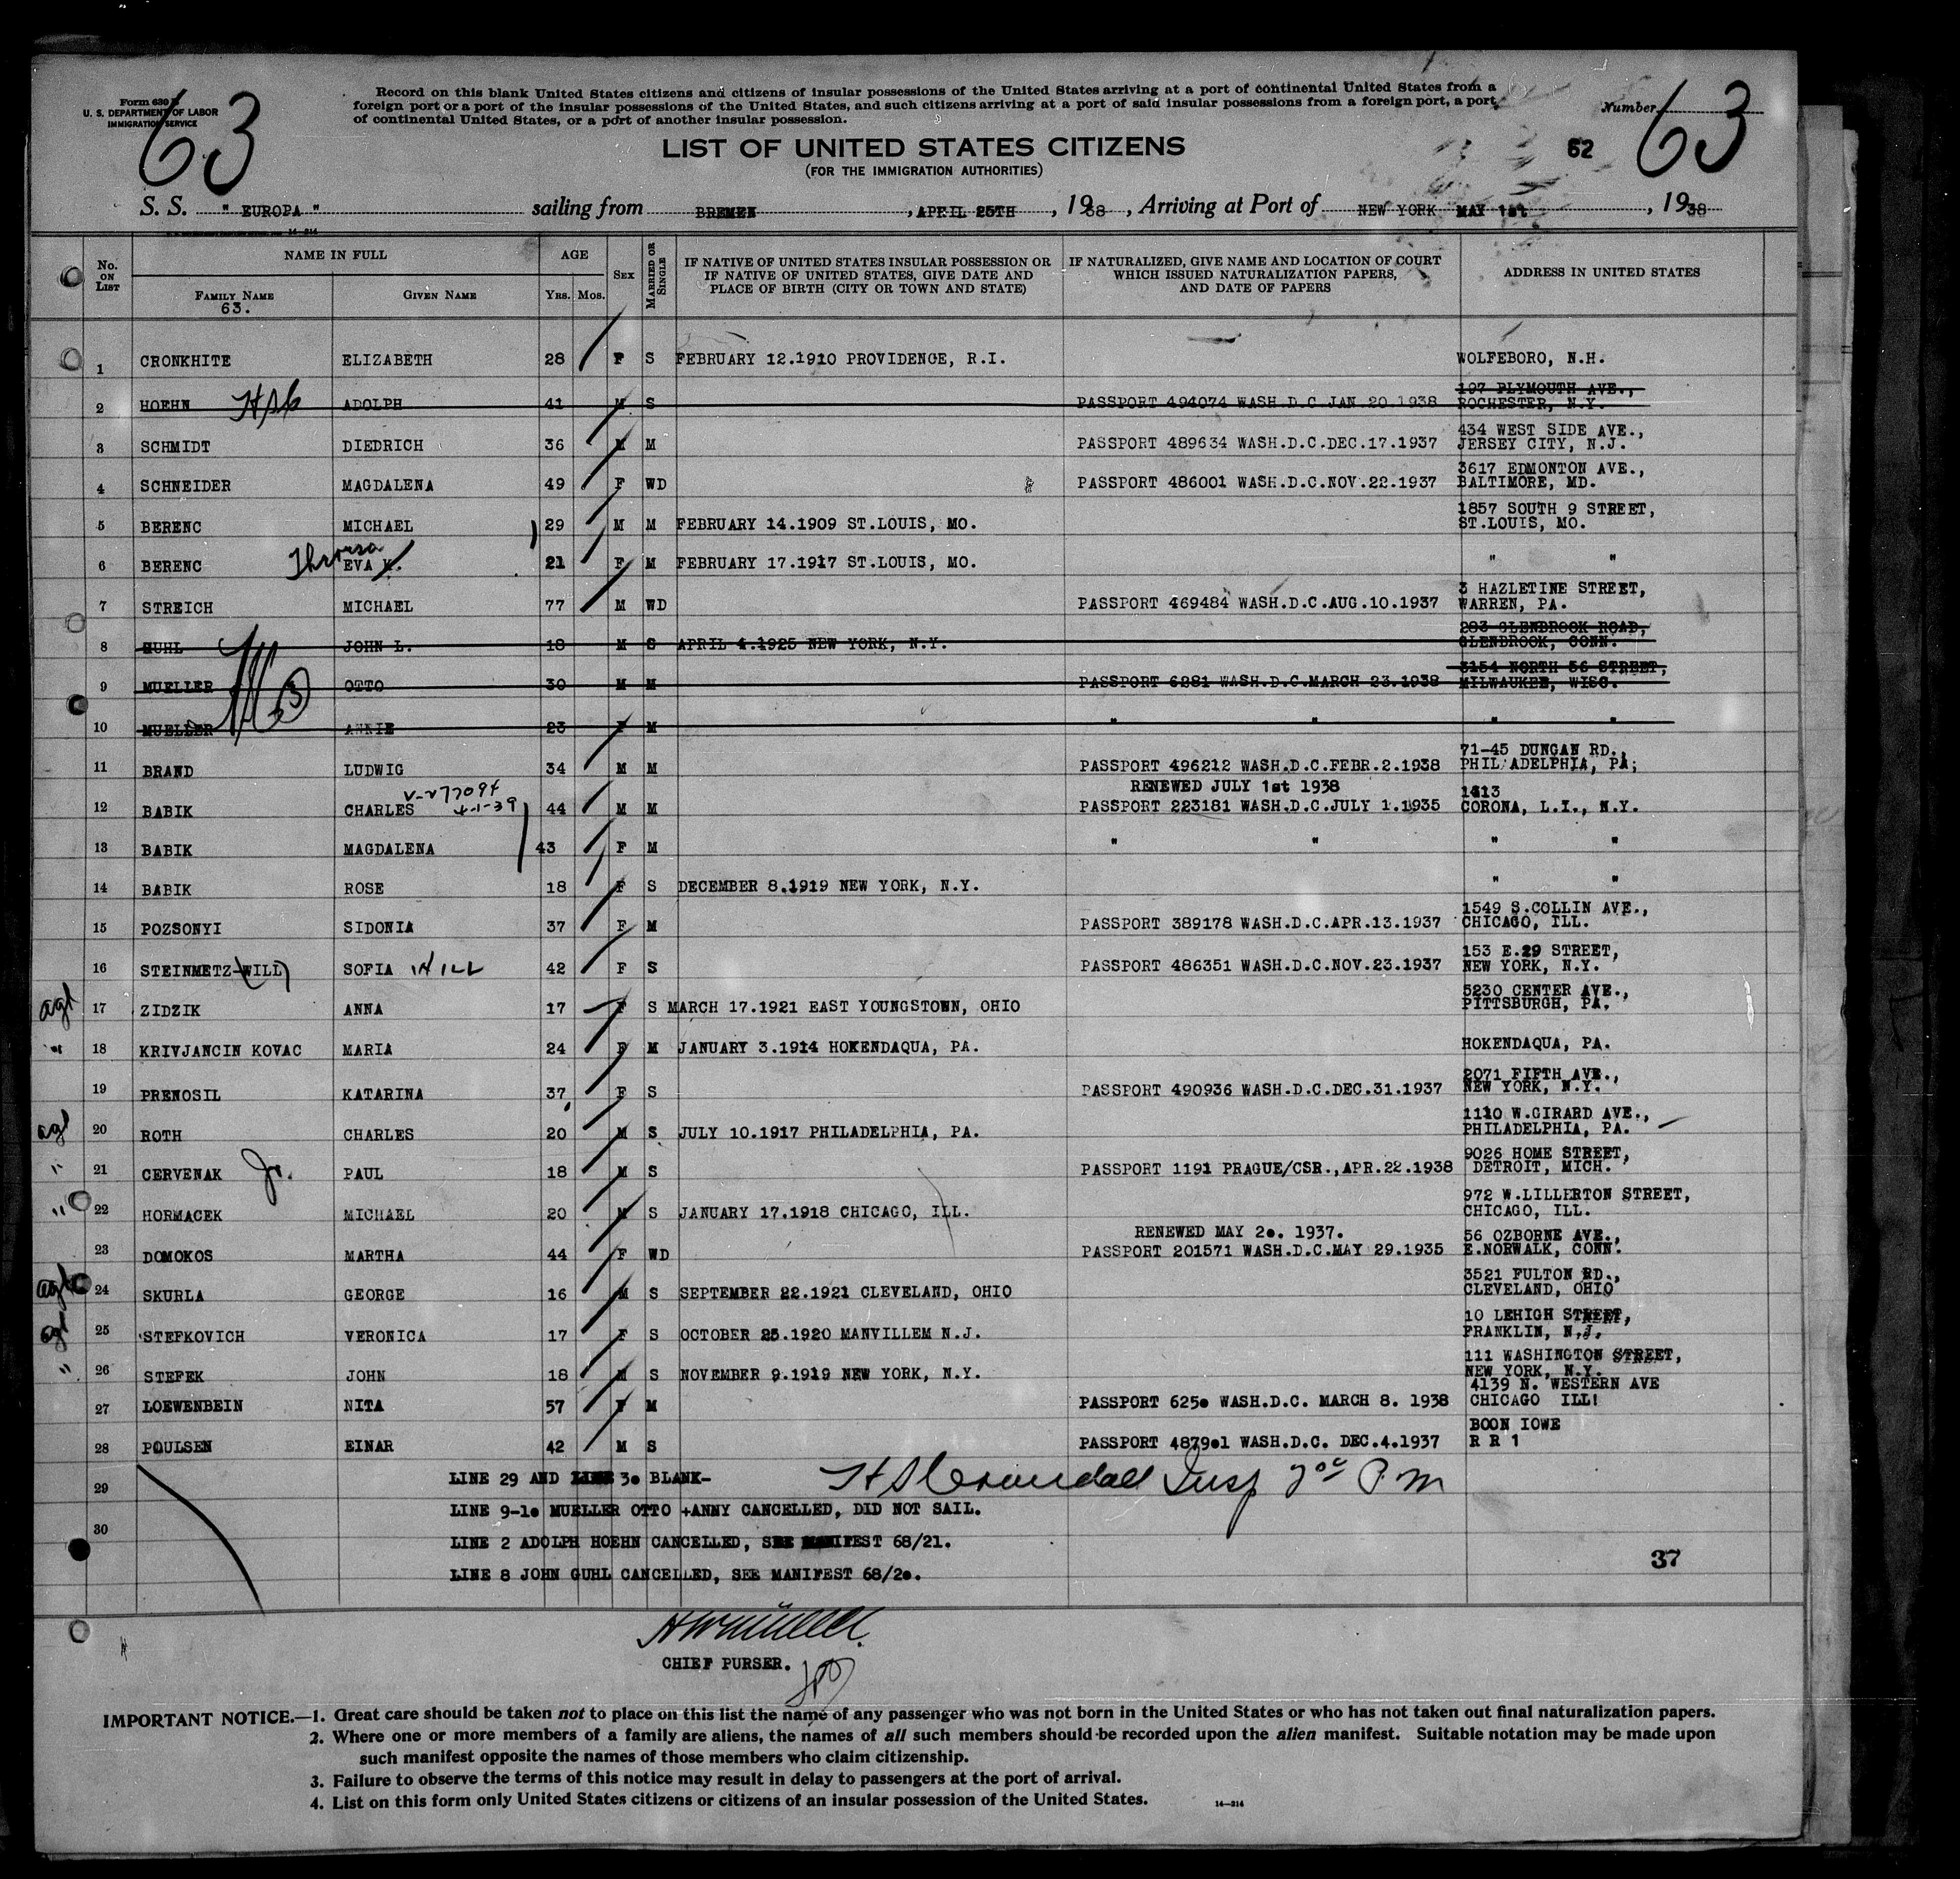 Form 630
U. S. DEPARTMENT OF LABOR
IMMIGRATION SERVICE
63
Record on this blank United States citizens and citizens of insular possessions of the United States arriving at a port of continental United States from a
foreign port or a port of the insular possessions of the United States, and such citizens arriving at a port of said insular possessions from a foreign port, a port
of continental United States, or a port of another insular possession.
Number 63
LIST OF UNITED STATES CITIZENS
62
(FOR THE IMMIGRATION AUTHORITIES)
S. S. " EUROPA " sailing from BREMEN , APRIL 25TH , 1938 , Arriving at Port of NEW YORK MAY 1st , 1938
14-214
No. ON LIST NAME IN FULL AGE SEX MARRIED OR SINGLE IF NATIVE OF UNITED STATES INSULAR POSSESSION OR IF NATIVE OF UNITED STATES, GIVE DATE AND PLACE OF BIRTH (CITY OR TOWN AND STATE) IF NATURALIZED, GIVE NAME AND LOCATION OF COURT WHICH ISSUED NATURALIZATION PAPERS, AND DATE OF PAPERS ADDRESS IN UNITED STATES
FAMILY NAME GIVEN NAME YRS. MOS.
63.
1 CRONKHITE ELIZABETH 28 F S FEBRUARY 12.1910 PROVIDENCE, R.I. WOLFEBORO, N.H.
197 PLYMOUTH AVE.,
2 HOEHN ADOLPH 41 M S PASSPORT 494074 WASH.D.C JAN 20 1938 ROCHESTER, N.Y.
434 WEST SIDE AVE.,
3 SCHMIDT DIEDRICH 36 M M PASSPORT 489634 WASH.D.C.DEC.17.1937 JERSEY CITY, N.J.
3617 EDMONTON AVE.,
4 SCHNEIDER MAGDALENA 49 F WD PASSPORT 486001 WASH.D.C.NOV.22.1937 BALTIMORE, MD.
1857 SOUTH 9 STREET,
5 BERENC MICHAEL 29 M M FEBRUARY 14.1909 ST.LOUIS, MO. ST.LOUIS, MO.
Theresa
6 BERENC EVA K. 21 F M FEBRUARY 17.1917 ST.LOUIS, MO. " "
3 HAZLETINE STREET,
7 STREICH MICHAEL 77 M WD PASSPORT 469484 WASH.D.C.AUG.10.1937 WARREN, PA.
283 GLENBROOK ROAD,
8 GUHL JOHN L. 18 M S APRIL 4.1925 NEW YORK, N.Y. GLENBROOK, CONN.
3154 NORTH 56 STREET,
9 MUELLER OTTO 30 M M PASSPORT 6281 WASH.D.C.MARCH 23.1938 MILWAUKEE, WISC.
10 MUELLER ANNIE 23 F M " " " "
71-45 DUNGAN RD.,
11 BRAND LUDWIG 34 M M PASSPORT 496212 WASH.D.C.FEBR.2.1938 PHILADELPHIA, PA;
V-277094 RENEWED JULY 1st 1938 1413
12 BABIK CHARLES 4-1-39 44 M M PASSPORT 223181 WASH.D.C.JULY 1.1935 CORONA, L.I., N.Y.
13 BABIK MAGDALENA 43 F M " " " "
14 BABIK ROSE 18 F S DECEMBER 8.1919 NEW YORK, N.Y. " "
1549 S.COLLIN AVE.,
15 POZSONYI SIDONIA 37 F M PASSPORT 389178 WASH.D.C.APR.13.1937 CHICAGO, ILL.
153 E.29 STREET,
16 STEINMETZ-WILL SOFIA WILL 42 F S PASSPORT 486351 WASH.D.C.NOV.23.1937 NEW YORK, N.Y.
5230 CENTER AVE.,
agl 17 ZIDZIK ANNA 17 F S MARCH 17.1921 EAST YOUNGSTOWN, OHIO PITTSBURGH, PA.
" 18 KRIVJANCIN KOVAC MARIA 24 F M JANUARY 3.1914 HOKENDAQUA, PA. HOKENDAQUA, PA.
2071 FIFTH AVE.,
19 PRENOSIL KATARINA 37 F S PASSPORT 490936 WASH.D.C.DEC.31.1937 NEW YORK, N.Y.
1110 W.GIRARD AVE.,
agl 20 ROTH CHARLES 20 M S JULY 10.1917 PHILADELPHIA, PA. PHILADELPHIA, PA.
9026 HOME STREET,
" 21 CERVENAK Jr. PAUL 18 M S PASSPORT 1191 PRAGUE/CSR.,APR.22.1938 DETROIT, MICH.
972 W.LILLERTON STREET,
" 22 HORMACEK MICHAEL 20 M S JANUARY 17.1918 CHICAGO, ILL. CHICAGO, ILL.
RENEWED MAY 2o. 1937. 56 OZBORNE AVE.,
23 DOMOKOS MARTHA 44 F WD PASSPORT 201571 WASH.D.C.MAY 29.1935 E.NORWALK, CONN.
3521 FULTON RD.,
agl 24 SKURLA GEORGE 16 M S SEPTEMBER 22.1921 CLEVELAND, OHIO CLEVELAND, OHIO
10 LEHIGH STREET,
agl 25 STEFKOVICH VERONICA 17 F S OCTOBER 25.1920 MANVILLEM N.J. FRANKLIN, N.J.
111 WASHINGTON STREET,
" 26 STEFEK JOHN 18 M S NOVEMBER 9.1919 NEW YORK, N.Y. NEW YORK, N.Y.
4139 N. WESTERN AVE
27 LOEWENBEIN NITA 57 F M PASSPORT 625o WASH.D.C. MARCH 8. 1938 CHICAGO ILL!
BOON IOWE
28 POULSEN EINAR 42 M S PASSPORT 4879o1 WASH.D.C. DEC.4.1937 R R 1
29 LINE 29 AND LINE 3o BLANK- H S Crandall Insp 7oo P m
LINE 9-1o MUELLER OTTO +ANNY CANCELLED, DID NOT SAIL.
30 LINE 2 ADOLPH HOEHN CANCELLED, SEE MANIFEST 68/21.
37
LINE 8 JOHN GUHL CANCELLED, SEE MANIFEST 68/2o.
CHIEF PURSER.
IMPORTANT NOTICE.—1. Great care should be taken not to place on this list the name of any passenger who was not born in the United States or who has not taken out final naturalization papers.
2. Where one or more members of a family are aliens, the names of all such members should be recorded upon the alien manifest. Suitable notation may be made upon
such manifest opposite the names of those members who claim citizenship.
3. Failure to observe the terms of this notice may result in delay to passengers at the port of arrival.
4. List on this form only United States citizens or citizens of an insular possession of the United States.
14-214